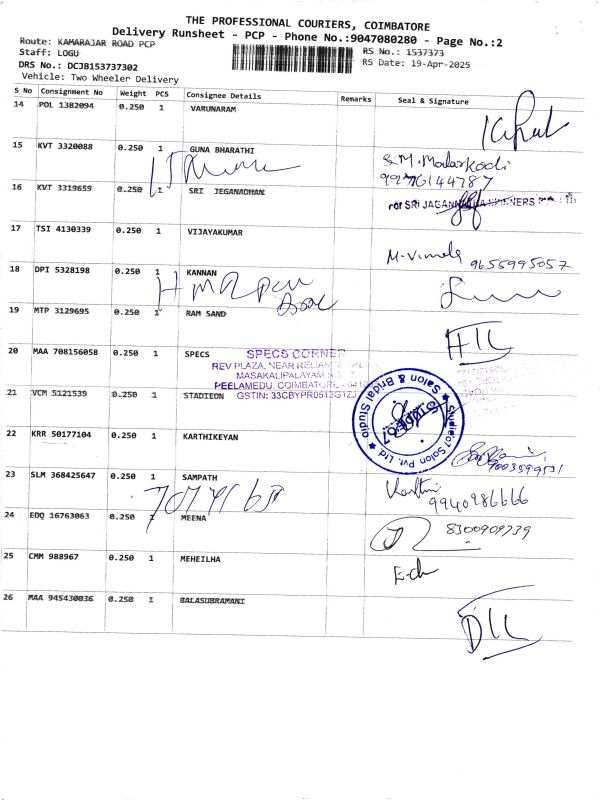 THE PROFESSIONAL COURIERS, COIMBATORE
Delivery Runsheet - PCP - Phone No.:9047080280 - Page No.:2
Route: KAMARAJAR ROAD PCP
Staff: LOGU
RS No.: 1537373
DRS No.: DCJB153737302
RS Date: 19-Apr-2025
Vehicle: Two Wheeler Delivery
S No Consignment No Weight PCS Consignee Details Remarks Seal & Signature
14 POL 1382094 0.250 1 VARUNARAM
15 KVT 3320088 0.250 1 GUNA BHARATHI
S.M. Malarkodi
9976144787
16 KVT 3319659 0.250 1 SRI JEGANADHAN
For SRI JAGANNATHA SPINNERS
17 TSI 4130339 0.250 1 VIJAYAKUMAR
M. Vimala 9655995057
18 DPI 5328198 0.250 1 KANNAN
19 MTP 3129695 0.250 1 RAM SAND
20 MAA 708156058 0.250 1 SPECS
SPECS CORNER
REV PLAZA, NEAR RELIANCE
MASAKALIPALAYAM
PEELAMEDU, COIMBATORE - 641
GSTIN: 33CBYPR0513G1ZJ
21 VCM 5121539 0.250 1 STADIEON
Studio7 Salon Pvt. Ltd.
Salon & Bridal Studio
STUDIO7
22 KRR 50177104 0.250 1 KARTHIKEYAN
23 SLM 368425647 0.250 1 SAMPATH
9940986666
24 EDQ 16763063 0.250 1 MEENA
8300909739
25 CMM 988967 0.250 1 MEHEILHA
26 MAA 945430036 0.250 1 BALASUBRAMANI